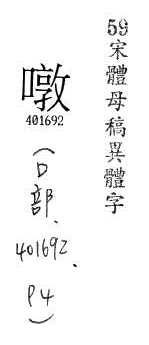 59宋體母稿異體字
噋
401692
(口部、401692、P4)